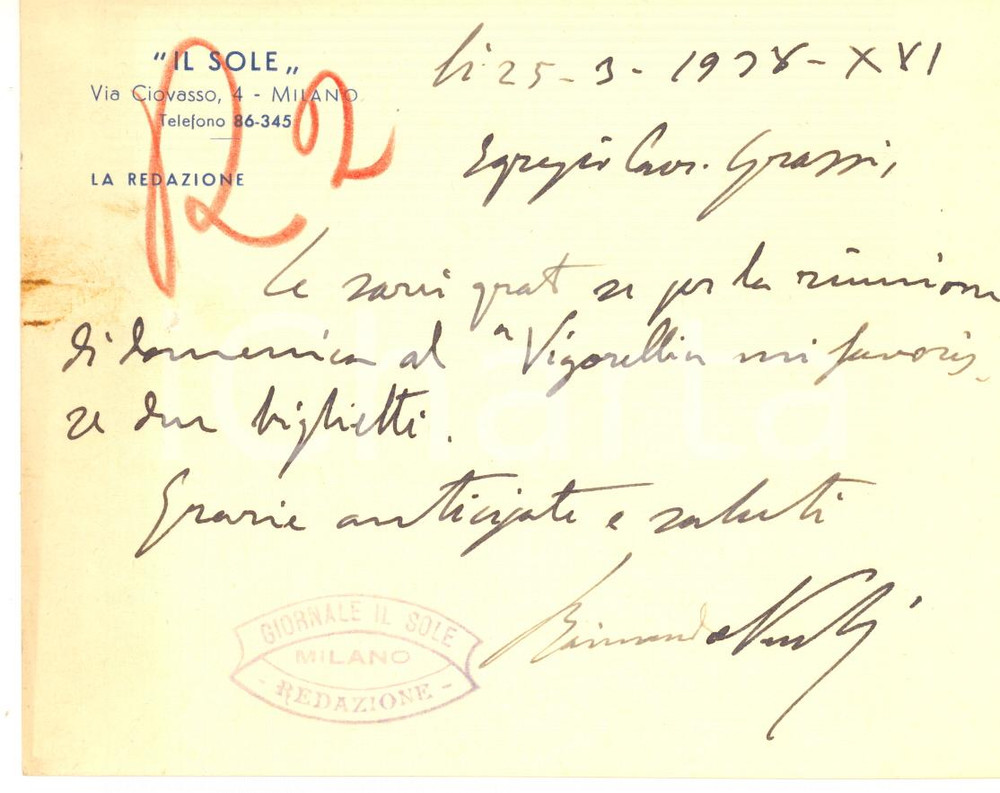 "IL SOLE„
Via Ciovasso, 4 - MILANO
Telefono 86-345
LA REDAZIONE
li 25 - 3 - 1938 - XVI
Egregio Cav. Grassi,
Le sarei grato se per la riunione
di domenica al "Vigorelli" mi favoris-
se due biglietti.
Grazie anticipate e saluti
Raimondo
GIORNALE IL SOLE
MILANO
- REDAZIONE -
iCharta